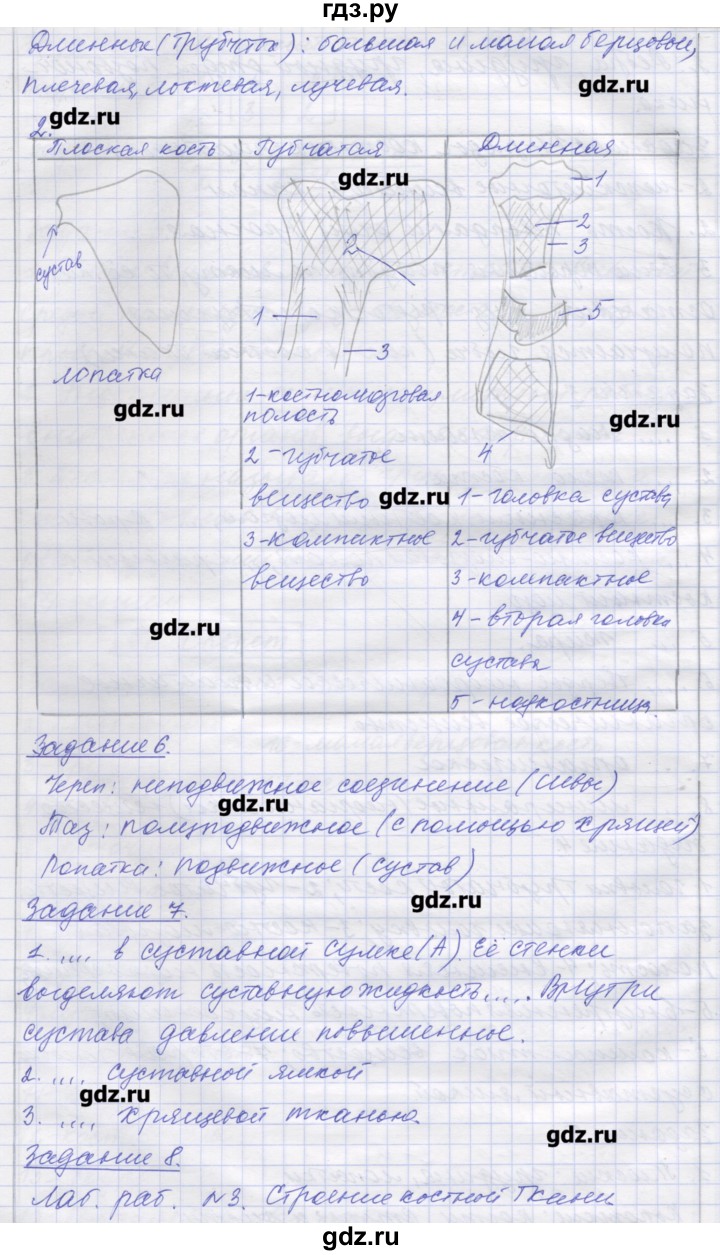 гдз.ру
Длинные (Трубчатые): большая и малая берцовые,
плечевая, локтевая, лучевая.
gdz.ru
gdz.ru
2.
Плоская кость
Губчатая
Длинная
gdz.ru
1
2
3
сустав
2
1
3
5
4
лопатка
gdz.ru
gdz.ru
1-костномозговая
полость
2-губчатое
вещество
gdz.ru
3-компактное
вещество
1-головка сустава
2-губчатое вещество
3-компактное
4-вторая головка
сустава
5-надкостница.
gdz.ru
Задание 6.
Череп: неподвижное соединение (швы)
gdz.ru
Таз: полуподвижное (с помощью хрящей)
Лопатка: подвижное (сустав)
gdz.ru
Задание 7.
1. .... в суставной сумке (А). Её стенки
выделяют суставную жидкость.... Внутри
сустава давление повышенное.
2. .... суставной ямкой
gdz.ru
3. .... хрящевой тканью.
gdz.ru
Задание 8.
Лаб. раб. №3. Строение костной ткани
gdz.ru